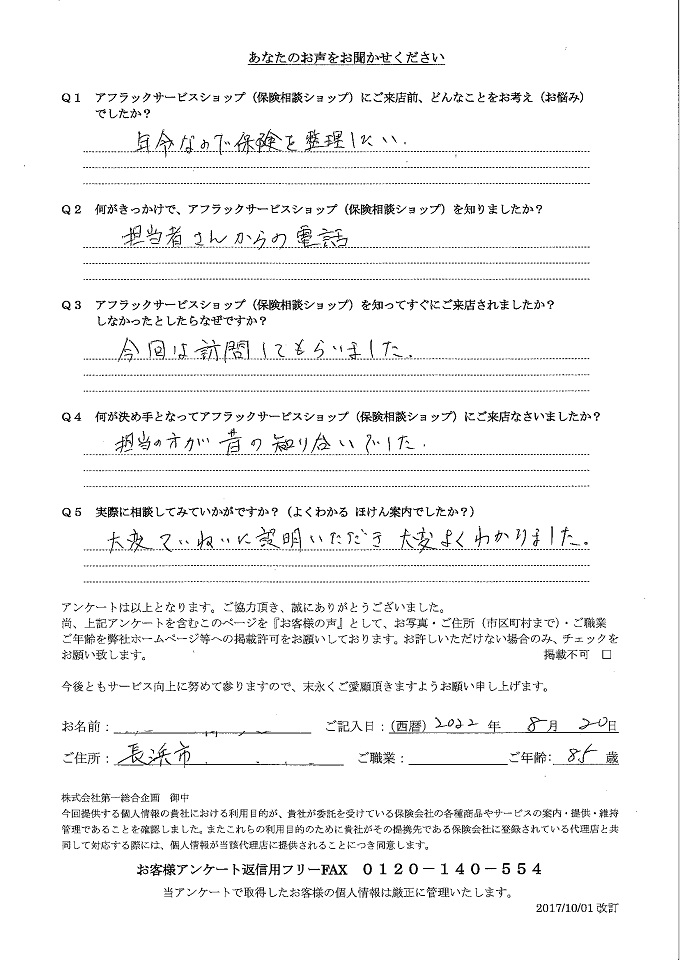 あなたのお声をお聞かせください
Q1 アフラックサービスショップ（保険相談ショップ）にご来店前、どんなことをお考え（お悩み）
でしたか？
年令なので保険を整理したい.
Q2 何がきっかけで、アフラックサービスショップ（保険相談ショップ）を知りましたか？
担当者さんからの電話
Q3 アフラックサービスショップ（保険相談ショップ）を知ってすぐにご来店されましたか？
しなかったとしたらなぜですか？
今回は訪問してもらいました.
Q4 何が決め手となってアフラックサービスショップ（保険相談ショップ）にご来店なさいましたか？
担当の方が昔の知り合いでした.
Q5 実際に相談してみていかがですか？（よくわかる ほけん案内でしたか？）
大変ていねいに説明いただき 大変よくわかりました。
アンケートは以上となります。ご協力頂き、誠にありがとうございました。
尚、上記アンケートを含むこのページを『お客様の声』として、お写真・ご住所（市区町村まで）・ご職業
ご年齢を弊社ホームページ等への掲載許可をお願いしております。お許しいただけない場合のみ、チェックを
お願い致します。 掲載不可 □
今後ともサービス向上に努めて参りますので、末永くご愛顧頂きますようお願い申し上げます。
お名前： ご記入日：（西暦）2022 年 8月 20日
ご住所：長浜市 ご職業： ご年齢：85 歳
株式会社第一総合企画 御中
今回提供する個人情報の貴社における利用目的が、貴社が委託を受けている保険会社の各種商品やサービスの案内・提供・維持
管理であることを確認しました。またこれらの利用目的のために貴社がその提携先である保険会社に登録されている代理店と共
同して対応する際には、個人情報が当該代理店に提供されることにつき同意します。
お客様アンケート返信用フリーFAX 0120－140－554
当アンケートで取得したお客様の個人情報は厳正に管理いたします。
2017/10/01 改訂